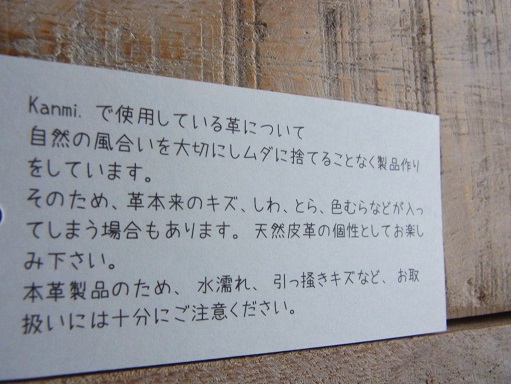 Kanmi. で使用している革について
自然の風合いを大切にしムダに捨てることなく製品作り
をしています。
そのため、革本来のキズ、しわ、とら、色むらなどが入っ
てしまう場合もあります。 天然皮革の個性としてお楽し
み下さい。
本革製品のため、 水濡れ、 引っ掻きキズなど、 お取
扱いには十分にご注意ください。